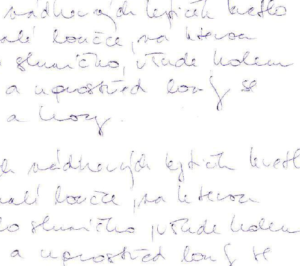 nádherných kytiček kvetlo
malé louče, na kterou
sluníčko, všude kolem
a uprostřed louky se
a hory.
nádherných kytiček kvetlo
malé louče, na kterou
sluníčko, všude kolem
a uprostřed louky se